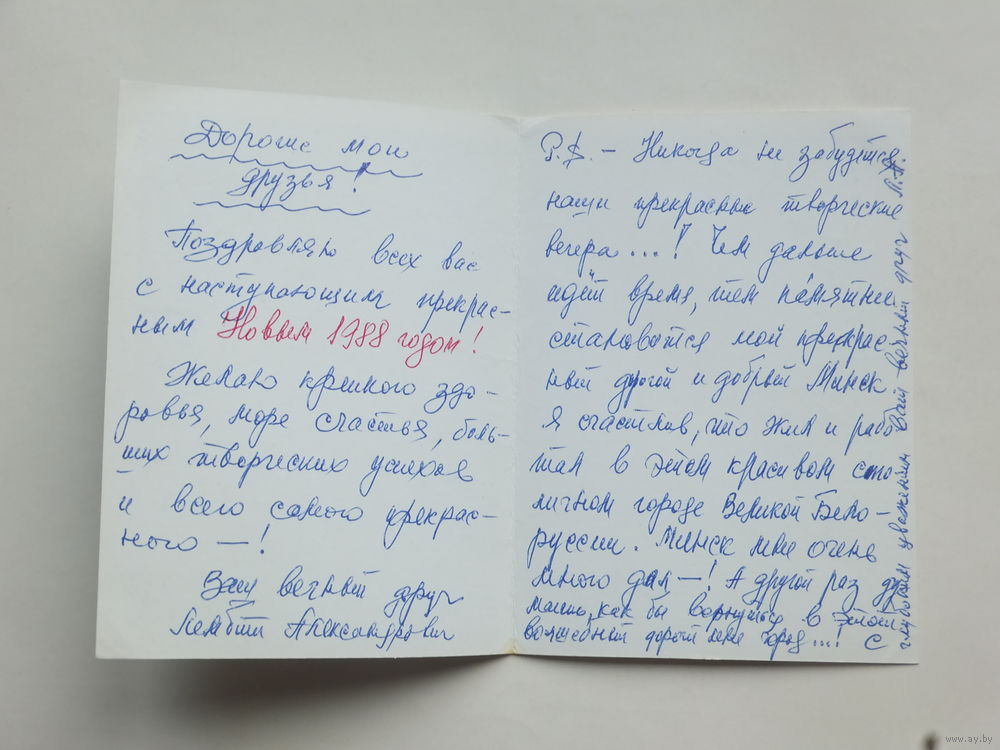 Дорогие мои
друзья!
Поздравляю всех вас
с наступающим прекрас-
ным Новым 1988 годом!
Желаю крепкого здо-
ровья, море счастья, боль-
ших творческих успехов
и всего самого прекрас-
ного —!
Ваш вечный друг
Лембит Александрович
P.S. – Никогда не забудется
наши прекрасные творческие
вечера...! Чем дальше
идёт время, тем памятнее
становится мой прекрас
ный другой и добрый Минск
Я счастлив, что жил и рабо
тал в этом красивом сто
личном городе Великой Бело-
руссии. Минск мне очень
много дал —! А другой раз ду
маешь, как бы вернуться в этот
волшебный дорогой мне город...! С
глубоким уважением Ваш вечный друг Л.А.
www.ay.by